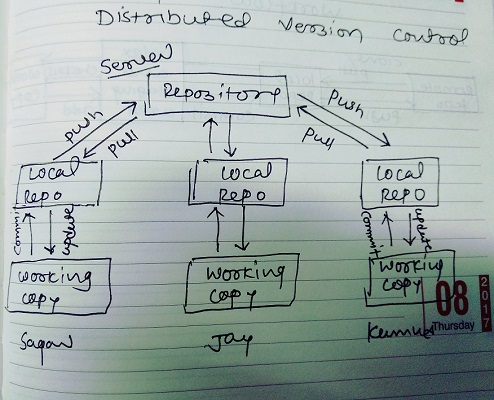 Distributed Version Control
Server
Repository
Push
Pull
Push
Pull
Local
Repo
Local
Repo
Local
Repo
commit
update
commit
update
Working
Copy
Working
Copy
Working
Copy
Sagar
Jay
08
Thursday
2017